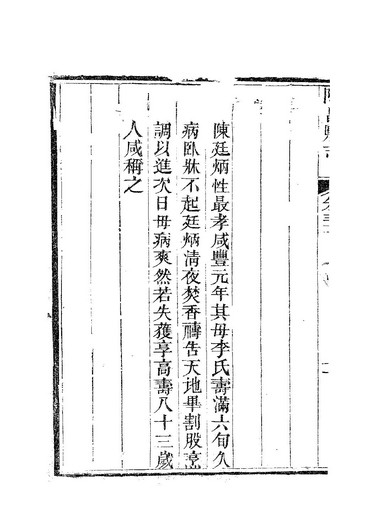 陳廷炳性最孝咸豐元年其母李氏壽滿六旬久
病臥牀不起廷炳清夜焚香禱告天地畢割股烹
調以進次日母病爽然若失獲享高壽八十三歲
人咸稱之